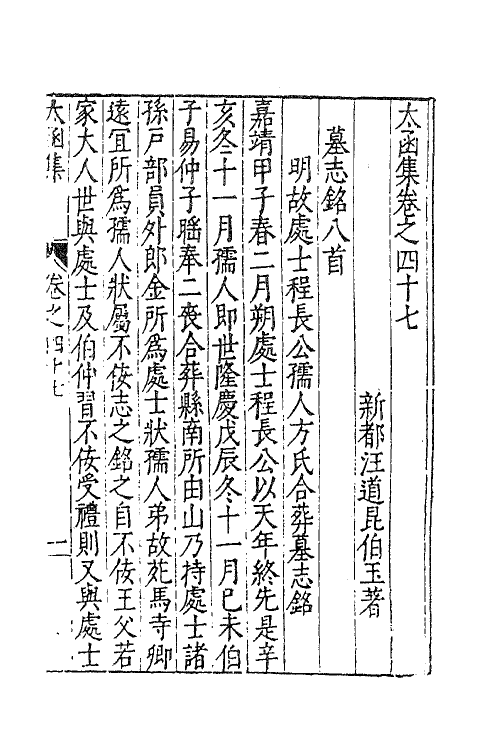 太函集卷之四十七
新都汪道昆伯玉著
墓志銘八首
明故處士程長公孺人方氏合葬墓志銘
嘉靖甲子春二月朔處士程長公以天年終先是辛
亥冬十一月孺人即世隆慶戊辰冬十一月己未伯
子易仲子㬱奉二喪合葬縣南所由山乃持處士諸
孫戸部員外郎金所爲處士狀孺人弟故苑馬寺卿
遠宜所爲孺人狀屬不佞志之銘之自不佞王父若
家大人世與處士及伯仲習不佞受禮則又與處士
太函集
卷之四十七
一